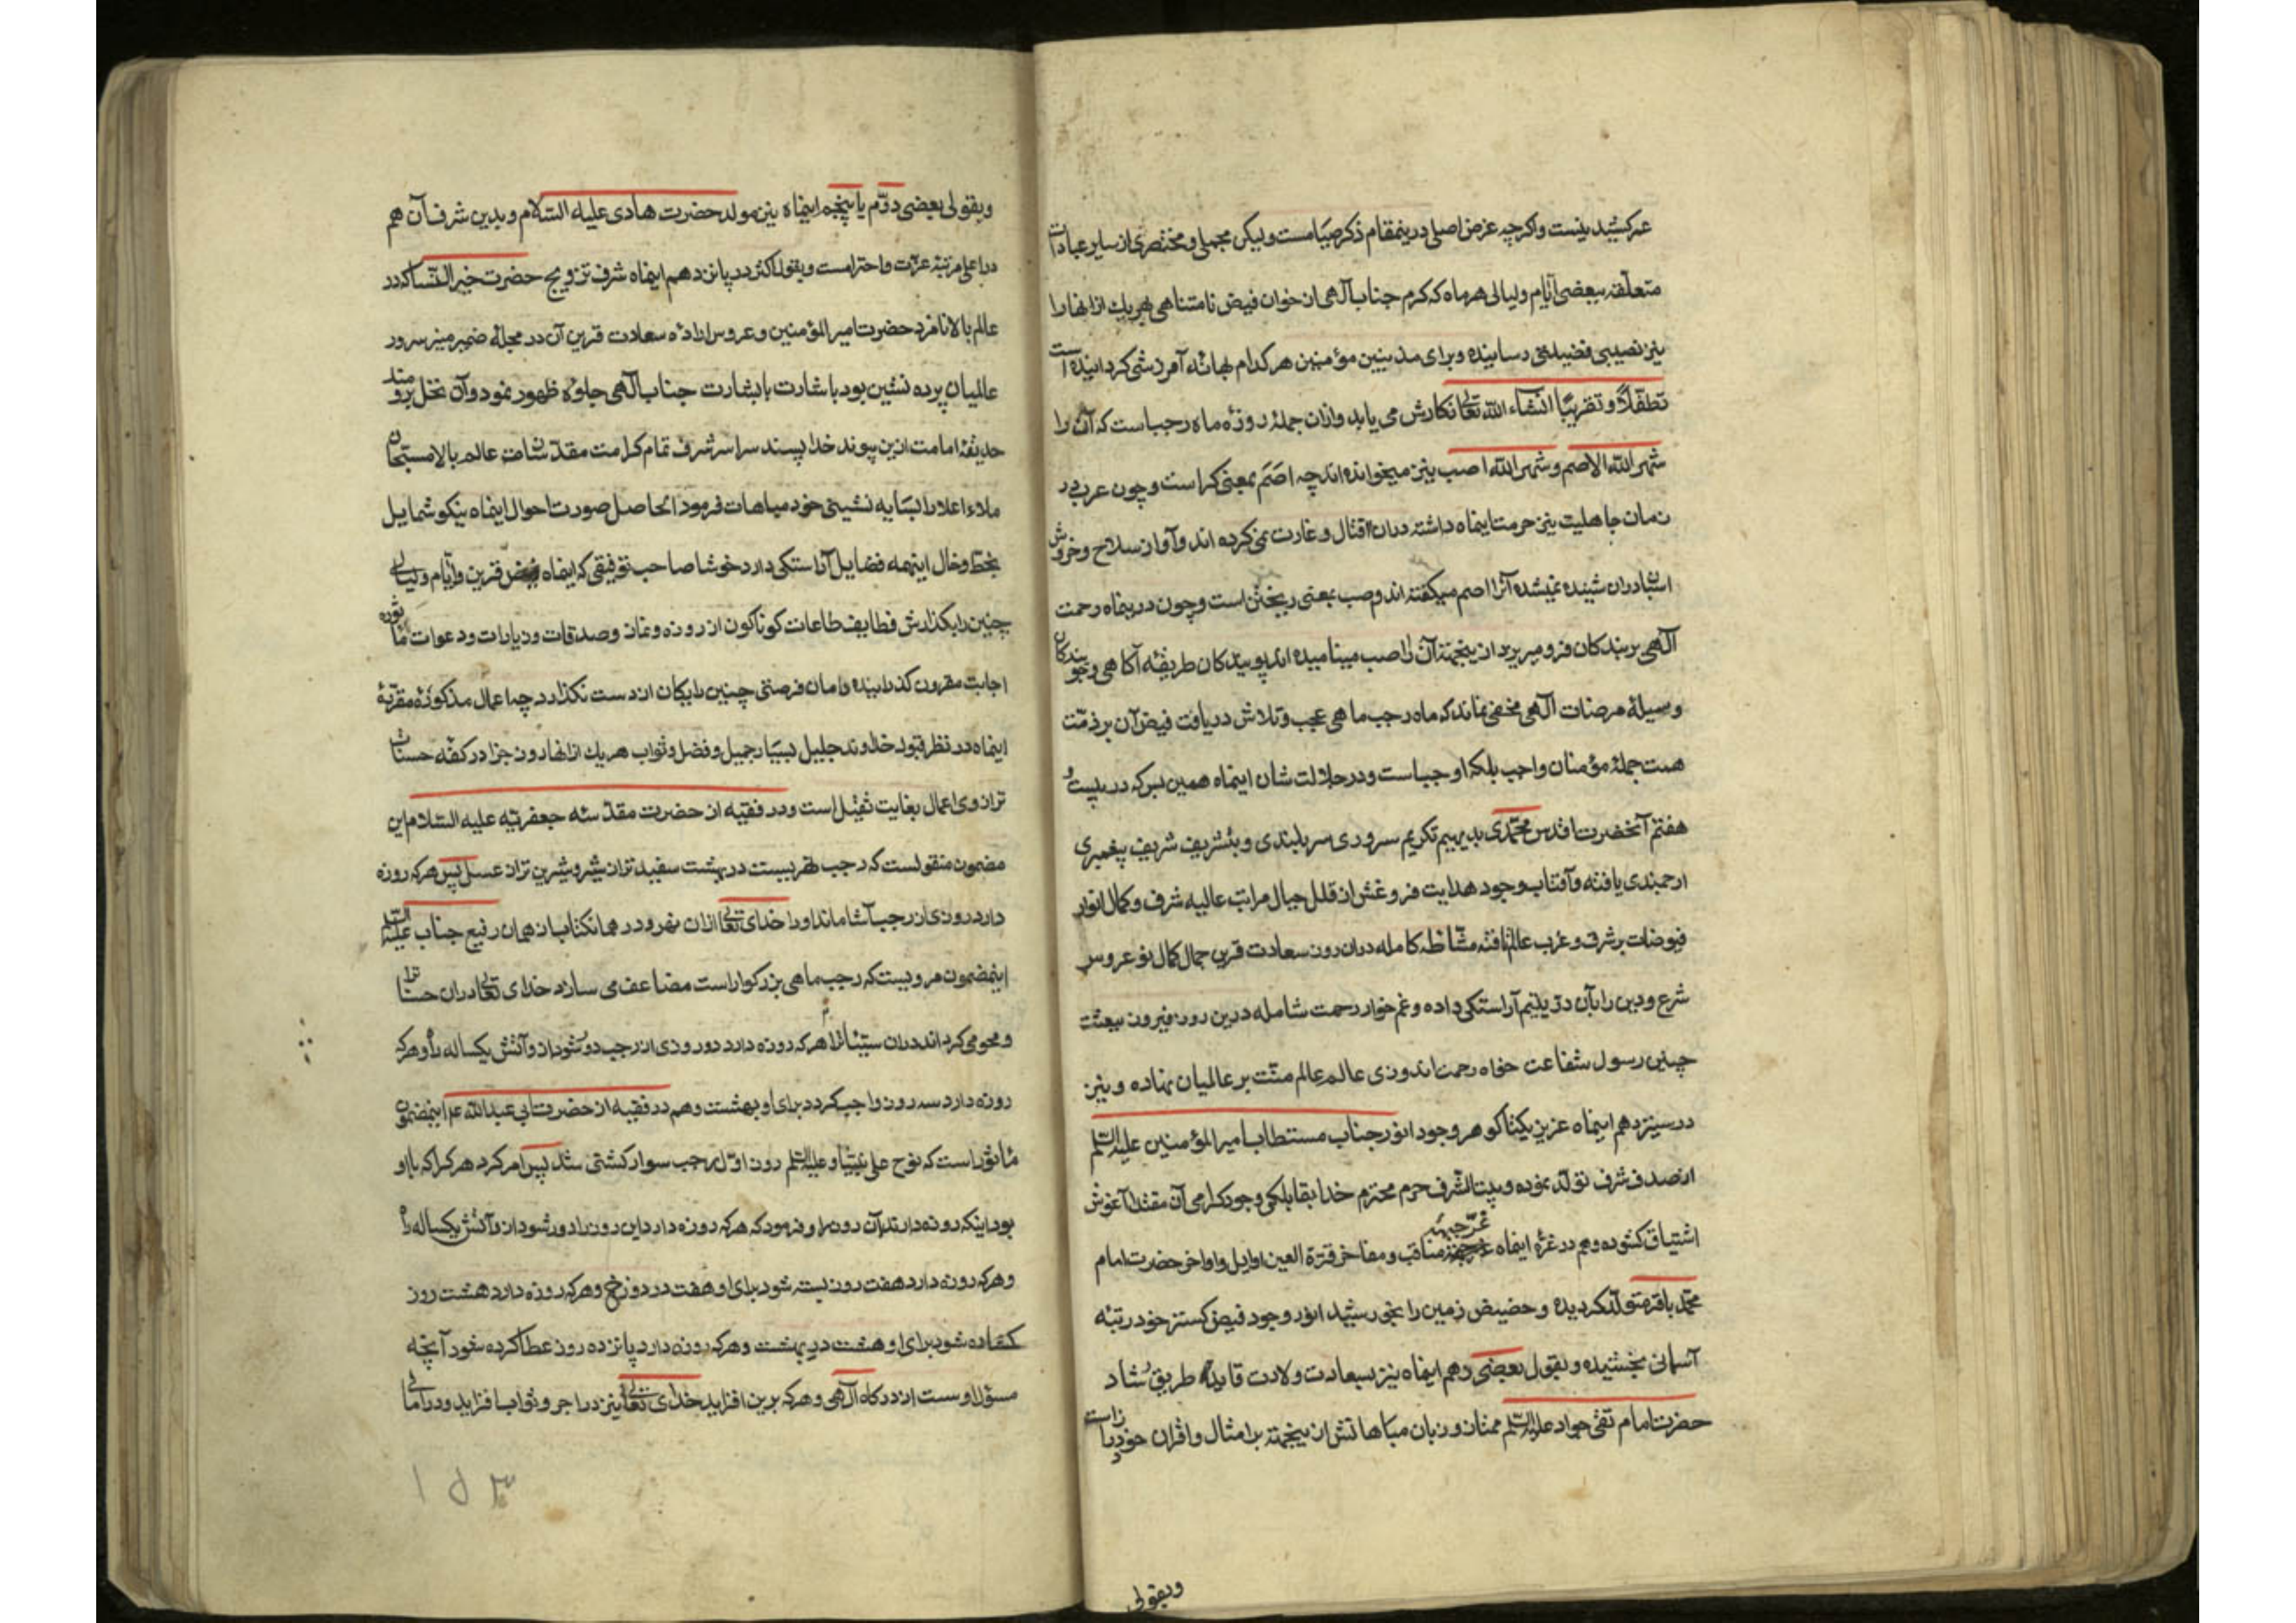 عرکشید نیست واکرچه غرض اصلی درینمقام ذکر صیامست ولیکن مجملی و مختصری از سایر عبادات
متعلقه ببعضی ایام ولیالی هر ماه که کرم جناب آلهی از خوان فیض نامتناهی بهر یك ازانها را
نیز نصیبی فضیلتی رسانیده وبرای مذنبین مؤمنین هر کدام بهانهٔ آمرزشی کردانیده است
تطفلاً و تقریباً انشاء الله تعالی نکارش می یابد وازان جمله روزهٔ ماه رجب است که آن را
شهر الله الاصم و شهر الله اصب نیز میخوانده اند چه اصَم بمعنی کر است و چون عرب در
زمان جاهلیت نیز حرمت اینماه داشته دران قتال و غارت نمی کرده اند وآواز سلاح و خروش
اسبان دران شنیده نمیشده آنرا اصم میکفته اند وصب بمعنی ریختن است وچون درینماه رحمت
آلهی بر بندکان فرو میریزد ازینجهة آن را اصب مینامیده اند پویندکان طریقه آکاهی وجویندکان
وسیلهٔ مرضات آلهی مخفی نماند که ماه رجب ماهی عجب وتلاش دریافت فیض آن بر ذمّت
همت جملهٔ مؤمنان واجب بلکه اوجب است ودر جلالت شان اینماه همین بس که در بیست و
هفتم آنحضرت اقدس محمّدی بدیهیم تکریم سروری سربلندی و بتشریف شریف پیغمبری
ارجمندی یافته وآفتاب وجود هدایت فروغش از قلل جبال مراتب عالیه شرف و کمال انوار
فیوضات بر شرق و غرب عالم تافته مشّاطهٔ کامله دران روز سعادت قرین جمال کمال نو عروس
شرع ودین را بآن درّ یتیم آراستکی داده و غم خوار رحمت شامله درین روز فیروز ببعثت
چنین رسول شفاعت خواه رحمت اندوزی عالم عالم منّت بر عالمیان نهاده و نیز
در سیزدهم اینماه عزیز یکتا کوهر وجود انور جناب مستطاب امیر المؤمنین علیه السّلم
از صدف شرف تولّد نموده و بیت الشّرف حرم محترم خدا بقابلکی وجود کرامی آن مقتدا آغوش
اشتیاق کشوده وهم در غرّهٔ اینماه غرّجبههٔ مناقب ومفاخر قرّة العین اوایل واواخر حضرت امام
محمّد باقر متولّد کردیده و حضیض زمین را بخورشید انور وجود فیض کستر خود رتبه
آسمانی بخشیده و بقول بعضی دهم اینماه نیز بسعادت ولادت قاید طریق رشاد
حضرت امام تقی جواد علیه السّلم ممتاز و زبان مباهاتش ازینجهة بر امثال واقران خود دراز است
وبقولی
وبقولی بعضی دوّم یا پنجم اینماه نیز مولد حضرت هادی علیه السّلام و بدین شرف آن هم
در اعلی مرتبهٔ عزّت واحترامست وبقول اکثر در پانزدهم اینماه شرف تزویج حضرت خیر النّسا که در
عالم بالا نامزد حضرت امیر المؤمنین وعروس ارادهٔ سعادت قرین آن در حجلهٔ ضمیر منیر سرور
عالمیان پرده نشین بود باشارت بابشارت جناب آلهی جلوهٔ ظهور نمود وآن نخل برومند
حدیقهٔ امامت ازین پیوند خدا پسند سراسر شرف تمام کرامت مقدّسان عالم بالا مسبّحان
ملاء اعلا را بسایه نشینی خود مباهات فرمود الحاصل صورت احوال اینماه نیکو شمایل
بخط وخال اینهمه فضایل آراستکی دارد خوشا صاحب توفیقی که اینماه فیض قرین وایام ولیالی
چنین را بکذارش وظایف طاعات کوناکون از روزه ونماز وصدقات وزیارات ودعوات ماثوره
اجابت مقرون کذرانیده دامان فرصتی چنین رایکان از دست نکذارد چه اعمال مذکورهٔ مقرّبهٔ
اینماه در نظر قبول خداوند جلیل بسیار جمیل وفضل وثواب هر یك ازانها روز جزا در کفّه حسنات
ترازوی اعمال بغایت ثقیل است ودر فقیه از حضرت مقدّسه جعفریّه علیه السّلام این
مضمون منقولست که رجب نهریست در بهشت سفیدتر از شیر وشیرین تر از عسل پس هرکه روزه
دارد روزی از رجب آشاماند او را خدای تعالی ازان نهر ودر همان کتاب از همان رفیع جناب علیه السّلم
اینمضمون مرویست که رجب ماهی بزرکوار است مضاعف می سازد خدای تعالی دران حسنات را
ومحو می کرداند دران سیّئات را هر که روزه دارد دو روزی از رجب دور شود ازو آتش یکساله راه وهرکه
روزه دارد سه روز واجب کردد برای او بهشت وهم در فقیه از حضرت ابی عبدالله ع اینمضمون
مأثور است که نوح علی نبیّنا و علیه السّلم روز اوّل رجب سوار کشتی شد پس امر کرد هر کرا که با او
بود اینکه روزه دارند آن روز را و فرمود که هرکه روزه دارد این روز را دور شود ازو آتش یکساله راه
وهرکه روزه دارد هفت روز بسته شود برای او هفت در دوزخ وهرکه روزه دارد هشت روز
کشاده شود برای او هشت در بهشت وهرکه روزه دارد پانزده روز عطا کرده شود آنچه
مسؤل اوست از درکاه آلهی وهرکه برین افزاید خدای تعالی نیز در اجر وثواب افزاید ودر امالی
۱۵۳